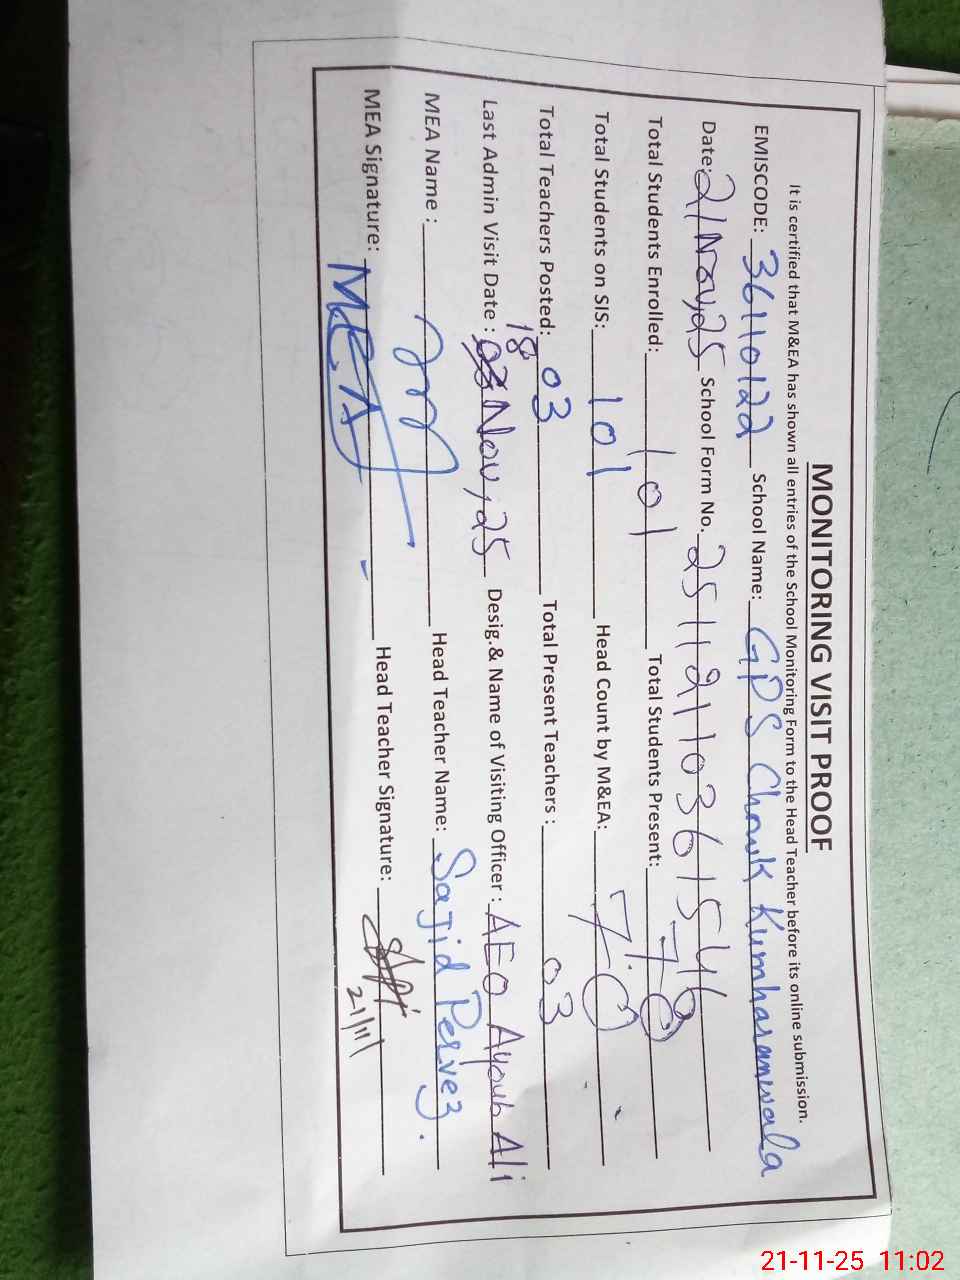 MONITORING VISIT PROOF
It is certified that M&EA has shown all entries of the School Monitoring Form to the Head Teacher before its online submission.
EMISCODE: 36110122 School Name: GPS Chowk Kumharanwala
Date: 21 Nov, 25 School Form No. 251121103615546
Total Students Enrolled: 101 Total Students Present: 70
Total Students on SIS: 101 Head Count by M&EA: 70
Total Teachers Posted: 03 Total Present Teachers : 03
Last Admin Visit Date : 18 Nov, 25 Desig.& Name of Visiting Officer : AEO Ayoub Ali
MEA Name : Head Teacher Name: Sajid Pervez
MEA Signature: MEA Head Teacher Signature: 21/11
21-11-25 11:02